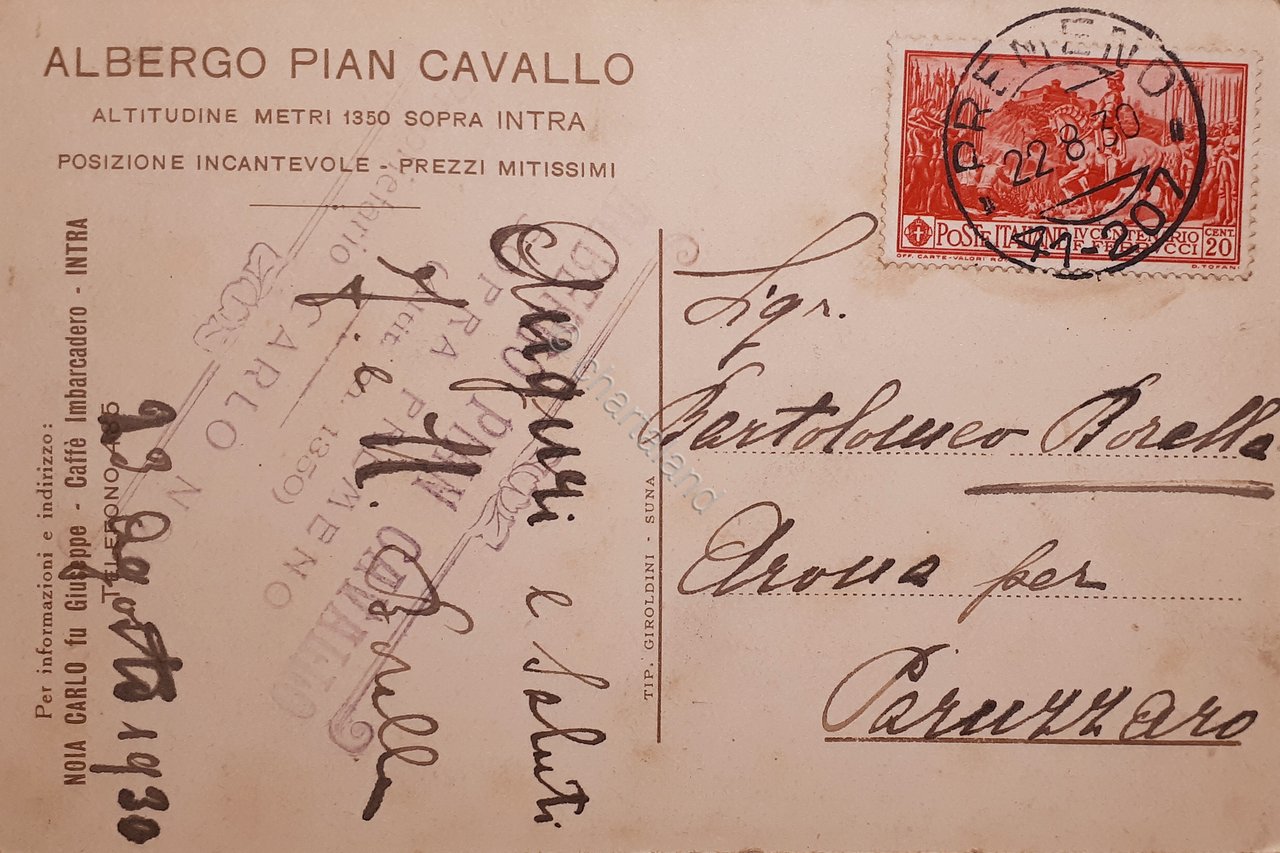 ALBERGO PIAN CAVALLO
ALTITUDINE METRI 1350 SOPRA INTRA
POSIZIONE INCANTEVOLE - PREZZI MITISSIMI
Per informazioni e indirizzo:
NOIA CARLO fu Giuseppe - Caffè Imbarcadero - INTRA
TELEFONO
Agosto 1930
Auguri e Saluti
Borella
CARLO N
PIAN CAVALLO
PREMENO
1350)
TIP. GIROLDINI - SUNA
PREMENO
22 8.30
41-207
POSTE ITALIANE IV CENTENARIO
F. FERRUCCI
CENT. 20
OFF. CARTE-VALORI
D. TOFANI
Sigr.
Bartolomeo Borella
Arona per
Paruzzaro
© chartaland